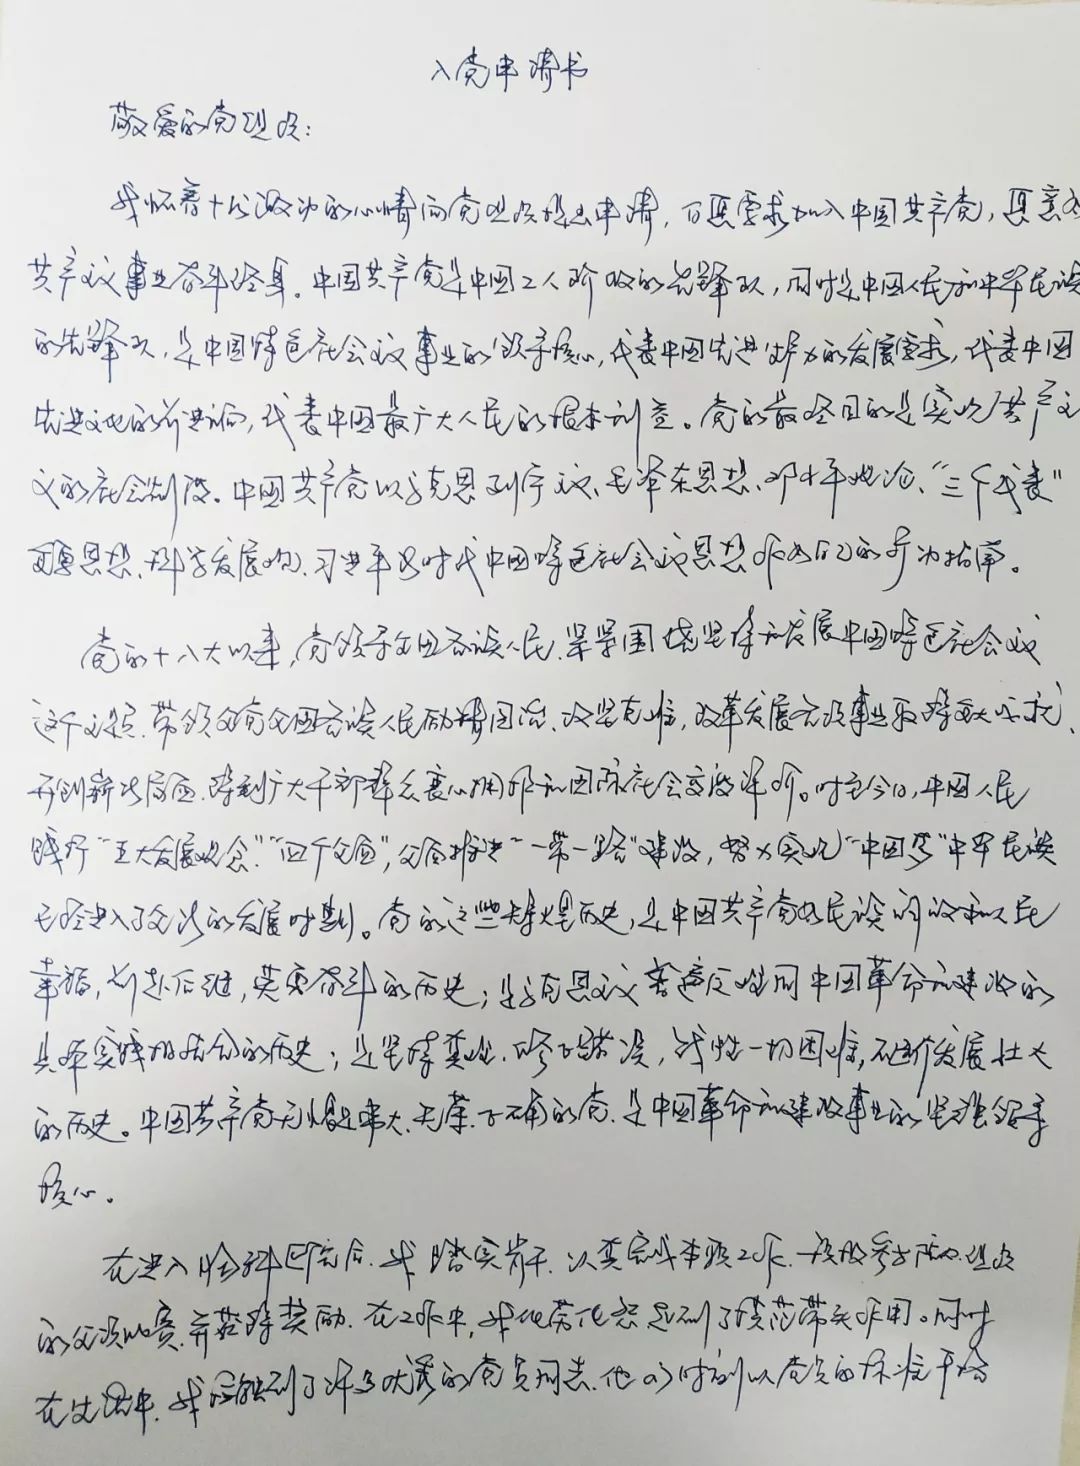 入党申请书
敬爱的党组织：
我怀着十分激动的心情向党组织提出申请，自愿要求加入中国共产党，愿意为
共产主义事业奋斗终身。中国共产党是中国工人阶级的先锋队，同时是中国人民和中华民族
的先锋队，是中国特色社会主义事业的领导核心，代表中国先进生产力的发展要求，代表中国
先进文化的前进方向，代表中国最广大人民的根本利益。党的最终目的是实现共产主
义的社会制度。中国共产党以马克思列宁主义、毛泽东思想、邓小平理论、“三个代表”
重要思想、科学发展观、习近平新时代中国特色社会主义思想作为自己的行为指南。
党的十八大以来，党领导全国各族人民，紧紧围绕坚持和发展中国特色社会主义
这个主题，带领全党全国各族人民励精图治、攻坚克难，改革发展各项事业取得重大成就，
开创新的局面，得到广大干部群众衷心拥护和国际社会高度评价。时至今日，中国人民
践行“五大发展观念”“四个全面”，全面推进“一带一路”建设，努力实现“中国梦”中华民族
已经进入了全新的发展时期。党的这些辉煌历史，是中国共产党为民族解放和人民
幸福，前赴后继，英勇奋斗的历史；是马克思主义普遍原理同中国革命和建设的
具体实践相结合的历史；是坚持真理，修正错误，战胜一切困难，不断发展壮大
的历史。中国共产党无愧是伟大、光荣、正确的党，是中国革命和建设事业的坚强领导
核心。
在进入检验科医院后，我踏实肯干，认真完成本职工作，积极参与院内组织
的各项比赛，并获得奖励，在工作中，我起到了模范带头作用。同时
在生活中，我接触到了许多优秀的党员同志，他们时刻以党员的标准严格